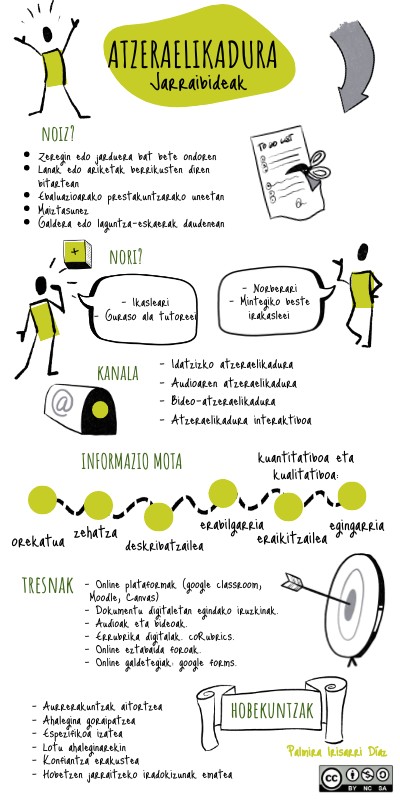 ATZERAELIKADURA
Jarraibideak
NOIZ?
• Zeregin edo jarduera bat bete ondoren
• Lanak edo ariketak berrikusten diren
bitartean
• Ebaluazioarako prestakuntzarako uneetan
• Maiztasunez
• Galdera edo laguntza-eskaerak daudenean
TO DO LIST
+
NORI?
- Ikasleari
- Guraso ala tutoreei
- Norberari
- Mintegiko beste
irakasleei
KANALA
@
- Idatzizko atzeraelikadura
- Audioaren atzeraelikadura
- Bideo-atzeraelikadura
- Atzeraelikadura interaktiboa
INFORMAZIO MOTA
kuantitatiboa eta
kualitatiboa:
orekatua
zehatza
deskribatzailea
erabilgarria
eraikitzailea
egingarria
TRESNAK
- Online plataformak (google classroom,
Moodle, Canvas)
- Dokumentu digitaletan egindako iruzkinak.
- Audioak eta bideoak.
- Errubrika digitalak. coRubrics.
- Online eztabaida foroak.
- Online galdetegiak: google forms.
HOBEKUNTZAK
- Aurrerakuntzak aitortzea
- Ahalegina goraipatzea
- Espezifikoa izatea
- Lotu ahaleginarekin
- Konfiantza erakustea
- Hobetzen jarraitzeko iradokizunak ematea
Palmira Irisarri Díaz
cc BY NC SA